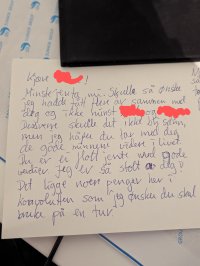 Kjære !
Minste jenta mi. Skulle så ønske
jeg hadde fått flere år sammen med
deg og ikke minst og
Dessverre skulle det ikke bli sånn,
men jeg håper du tar med deg
de gode minnene videre i livet.
Du er ei flott jente med gode
verdier jeg er så stolt av deg
Det ligge noen penger her i
konvolutten som jeg ønsker du skal
bruke på en tur.